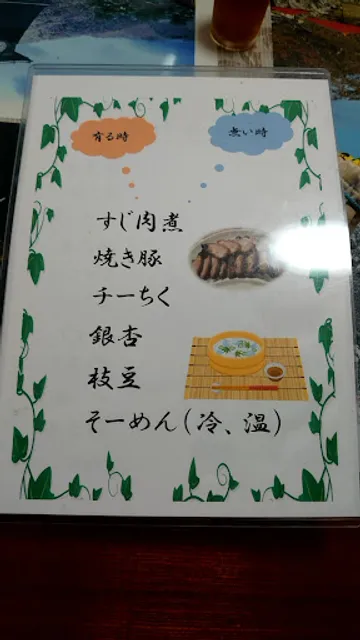 有る時
無い時
すじ肉煮
焼き豚
チーちく
銀杏
枝豆
そーめん(冷、温)